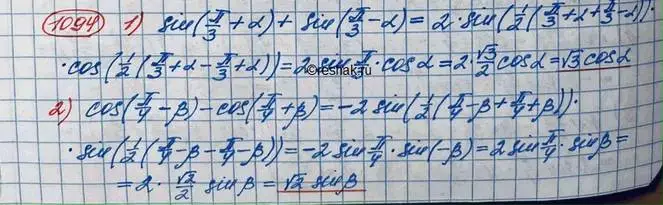 1094 1) sin(π/3+α)+sin(π/3-α)=2·sin(1/2(π/3+α+π/3-α))·
·cos(1/2(π/3+α-π/3+α))=2 sin π/3·cosα=2·√3/2 cosα=√3 cosα
©reshak.ru
2) cos(π/4-β)-cos(π/4+β)=-2 sin(1/2(π/4-β+π/4+β))·
·sin(1/2(π/4-β-π/4-β))=-2 sin π/4·sin(-β)=2 sin π/4·sinβ=
=2·√2/2 sinβ=√2 sinβ